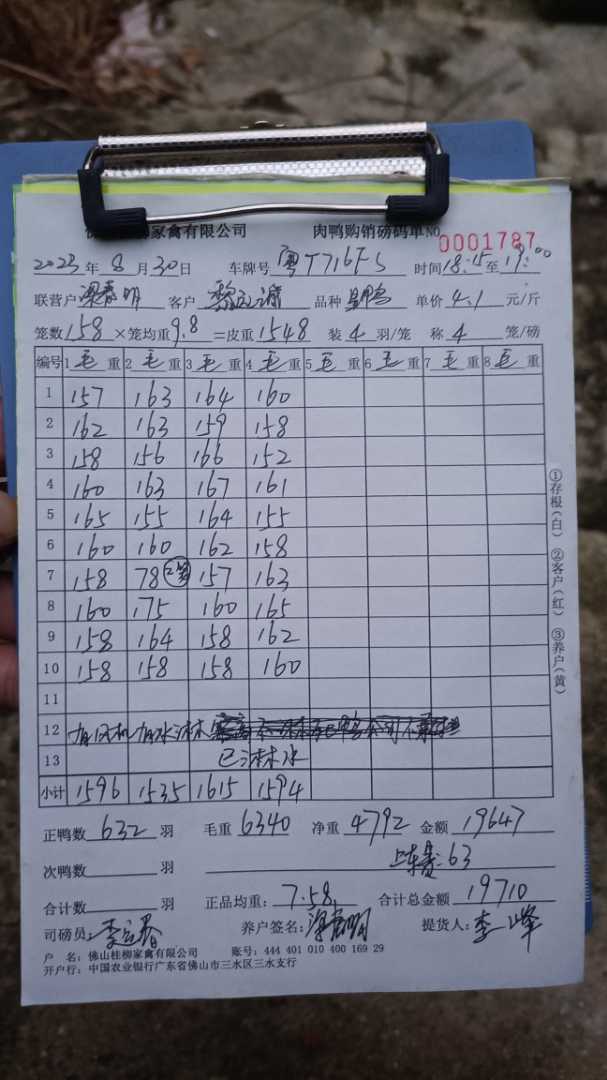 柳家禽有限公司 肉鸭购销磅码单 No 0001787
2023年8月30日 车牌号 粤T716F5 时间18:15至19:00
联营户 客户 品种 鸭 单价 4.1 元/斤
笼数158×笼均重9.8=皮重1548 装4羽/笼 称4笼/磅
编号 1毛重 2毛重 3毛重 4毛重 5毛重 6毛重 7毛重 8毛重
1 157 163 164 160
2 162 163 159 158
3 158 156 166 152
4 160 163 167 161
5 165 155 164 155
6 160 160 162 158
7 158 78 2笼 157 163
8 160 175 160 165
9 158 164 158 162
10 158 158 158 160
11
12 有风机 有水淋
13 已淋水
小计 1596 1535 1615 1594
正鸭数 632 羽 毛重 6340 净重 4792 金额 19647
次鸭数 羽 上车费:63
合计数 羽 正品均重:7.58 合计总金额 19710
司磅员: 养户签名: 提货人:李峰
户 名:佛山桂柳家禽有限公司 账号:444 401 010 400 169 29
开户行:中国农业银行广东省佛山市三水区三水支行
①存根(白) ②客户(红) ③养户(黄)